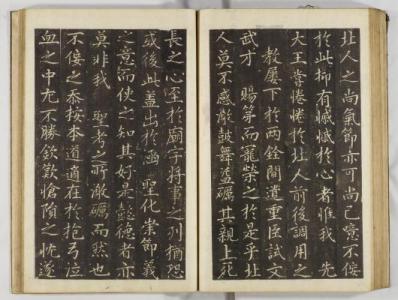 北人之尚氣節亦可尚已噫不佞
於此抑有慽慽於心者惟我 先
大王嘗惓惓於北人前後調用之
教屢下於两銓間遣重臣試文
武才 賜第而寵榮之於是乎北
人莫不感激鼓舞益礪其親上死
長之心至於廟宇將事之列猶恐
或後此盖出於涵 聖化崇節義
之意而使之知其好是懿德者亦
莫非我 聖考之所激礪而然也
不佞之忝按本道適在於抱弓泣
血之中尤不勝欽歎愴隕之忱遂